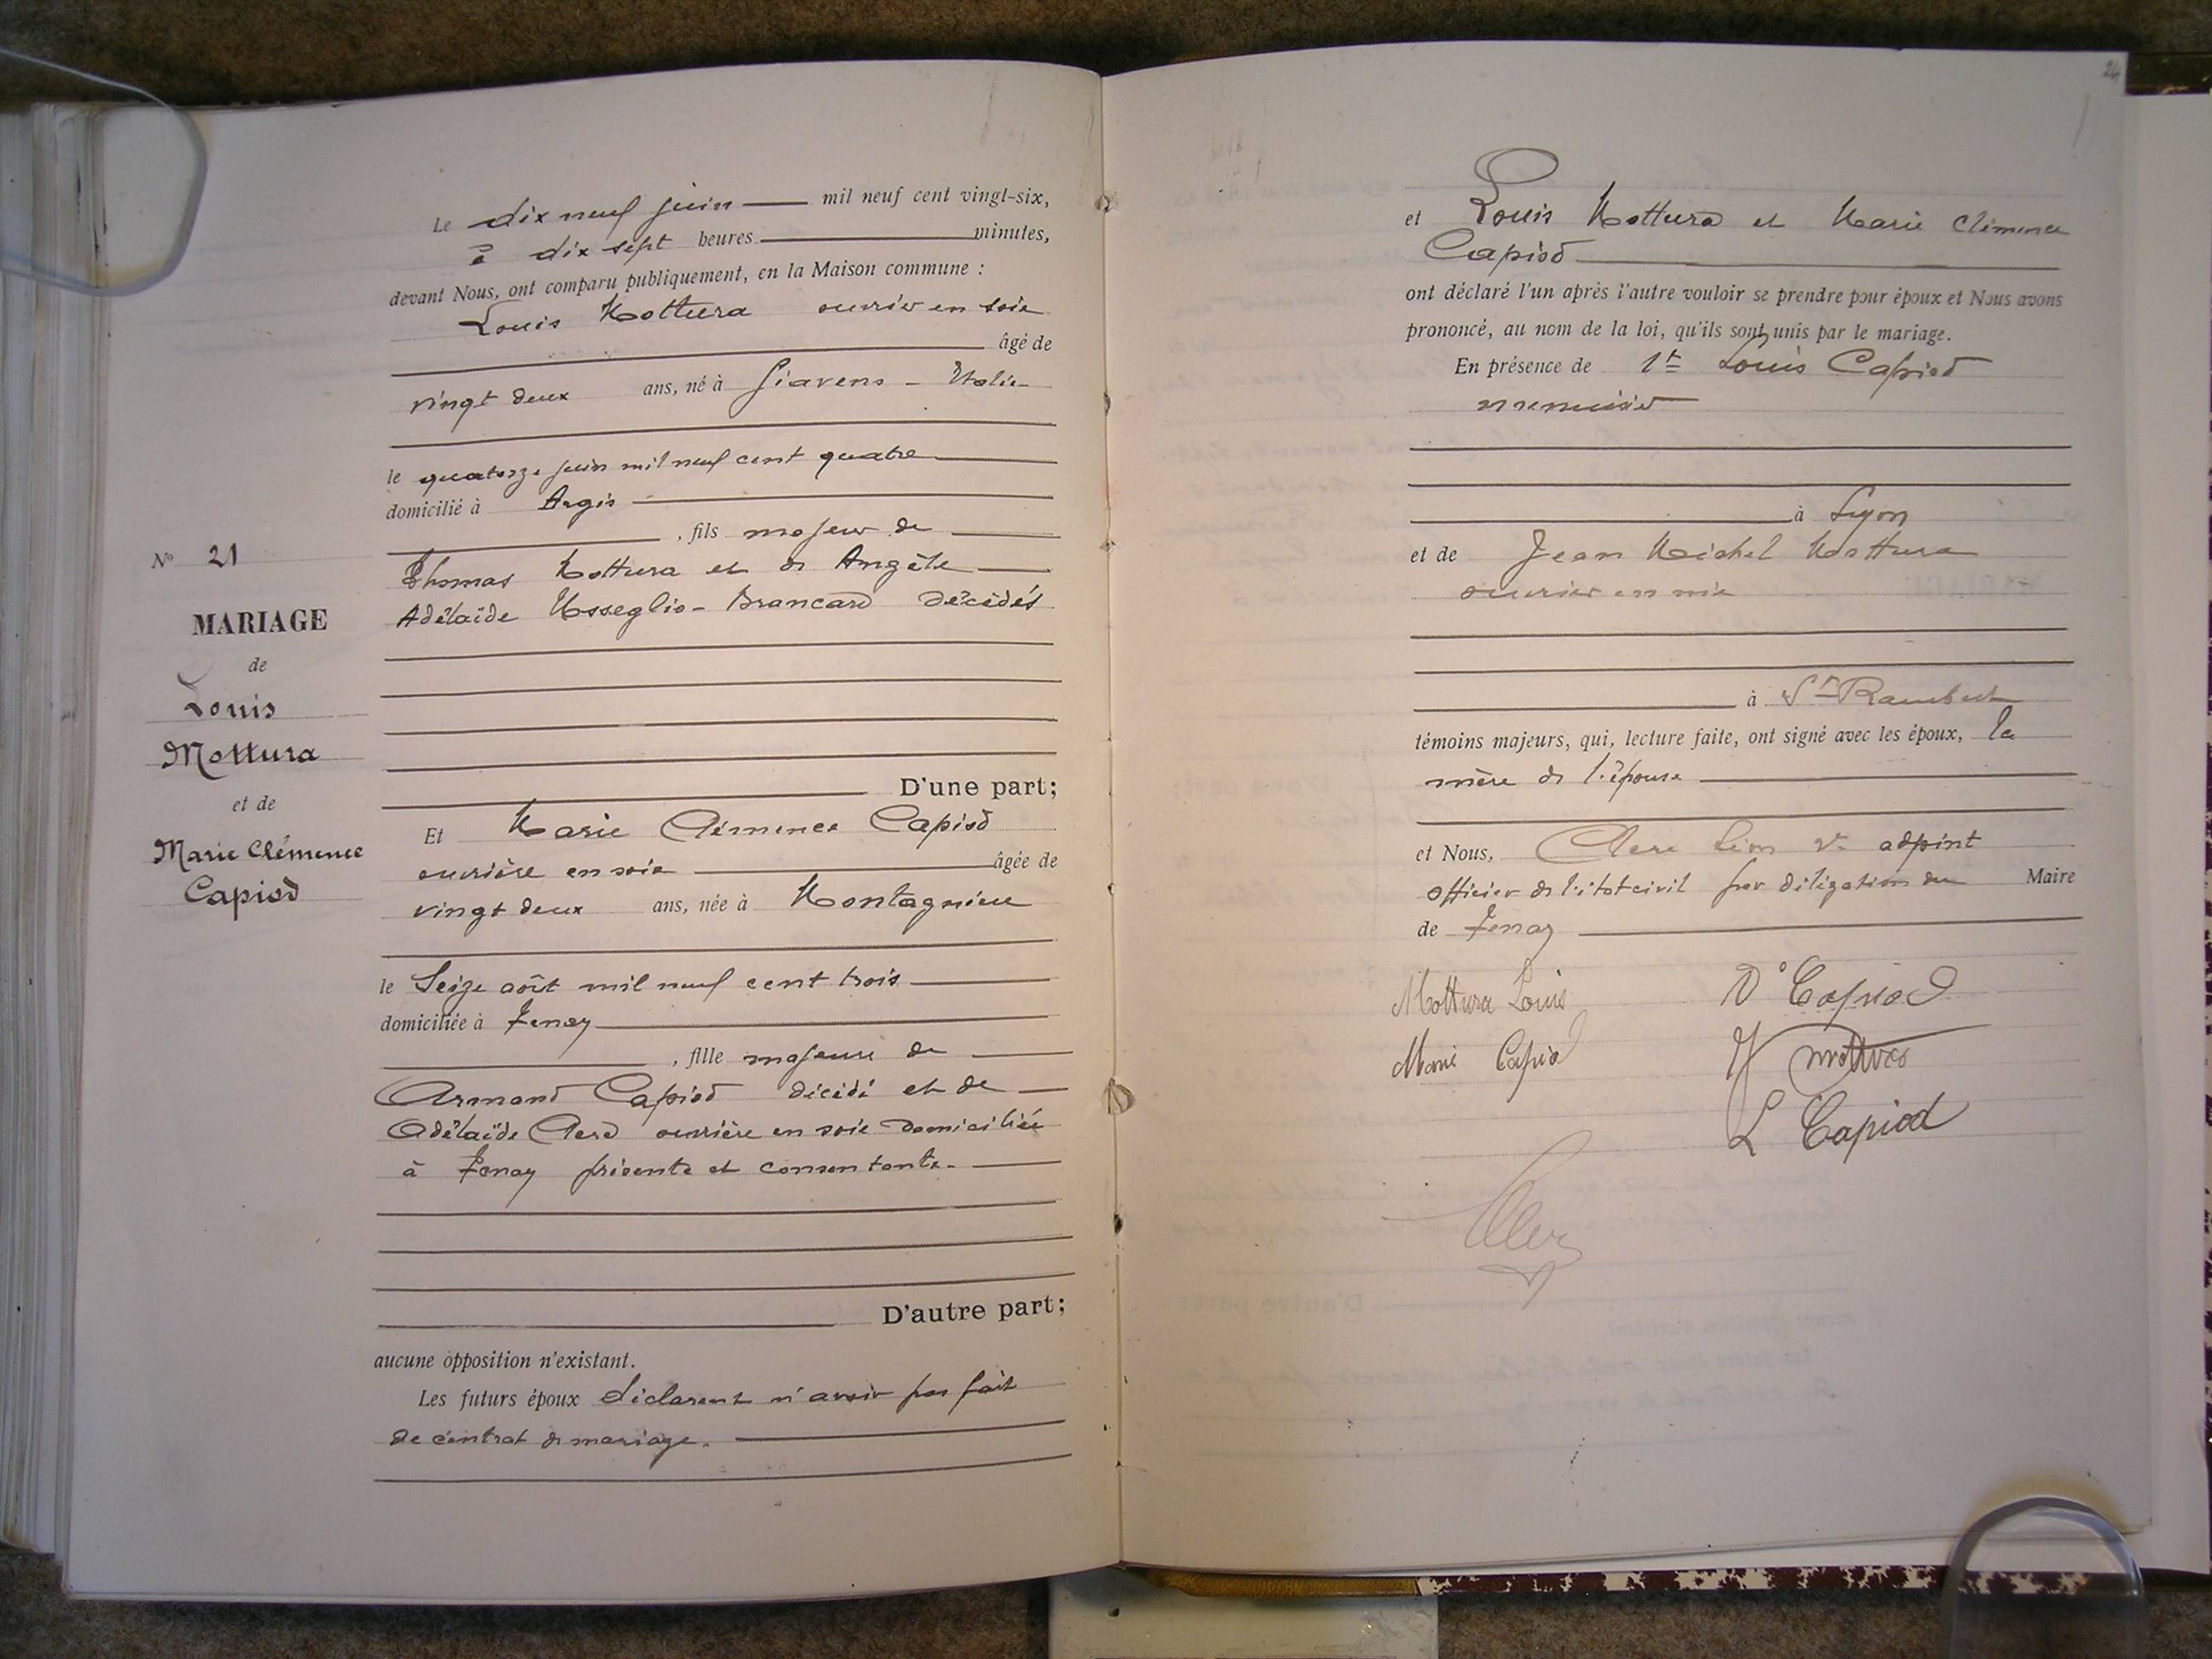 Le dix neuf juin mil neuf cent vingt-six,
à dix sept heures minutes,
devant Nous, ont comparu publiquement, en la Maison commune :
Louis Mottura ouvrier en soie
âgé de
vingt deux ans, né à Giaveno - Italie
le quatorze juin mil neuf cent quatre
domicilié à Argis
, fils majeur de
Thomas Mottura et de Angèle
Adélaïde Usseglio - Brancard décédés
D'une part;
N° 21
MARIAGE
de
Louis
Mottura
et de
Marie Clémence
Capiod
Et Marie Clémence Capiod
ouvrière en soie âgée de
vingt deux ans, née à Montagnieu
le Seize août mil neuf cent trois
domiciliée à Tenay
, fille majeure de
Armand Capiod décédé et de
Adélaïde ouvrière en soie domiciliée
à Tenay présente et consentante.
D'autre part;
aucune opposition n'existant.
Les futurs époux déclarent n'avoir pas fait
de contrat de mariage.
24
et Louis Mottura et Marie Clémence
Capiod
ont déclaré l'un après l'autre vouloir se prendre pour époux et Nous avons
prononcé, au nom de la loi, qu'ils sont unis par le mariage.
En présence de Louis Capiod
menuisier
à Lyon
et de Jean Michel Mottura
ouvrier en soie
à St Rambert
témoins majeurs, qui, lecture faite, ont signé avec les époux, la
mère de l'épouse
et Nous, Léon adjoint
officier de l'état civil par délégation du Maire
de Tenay
Mottura Louis
Vve Capiod
Marie Capiod
Mottura
L Capiod